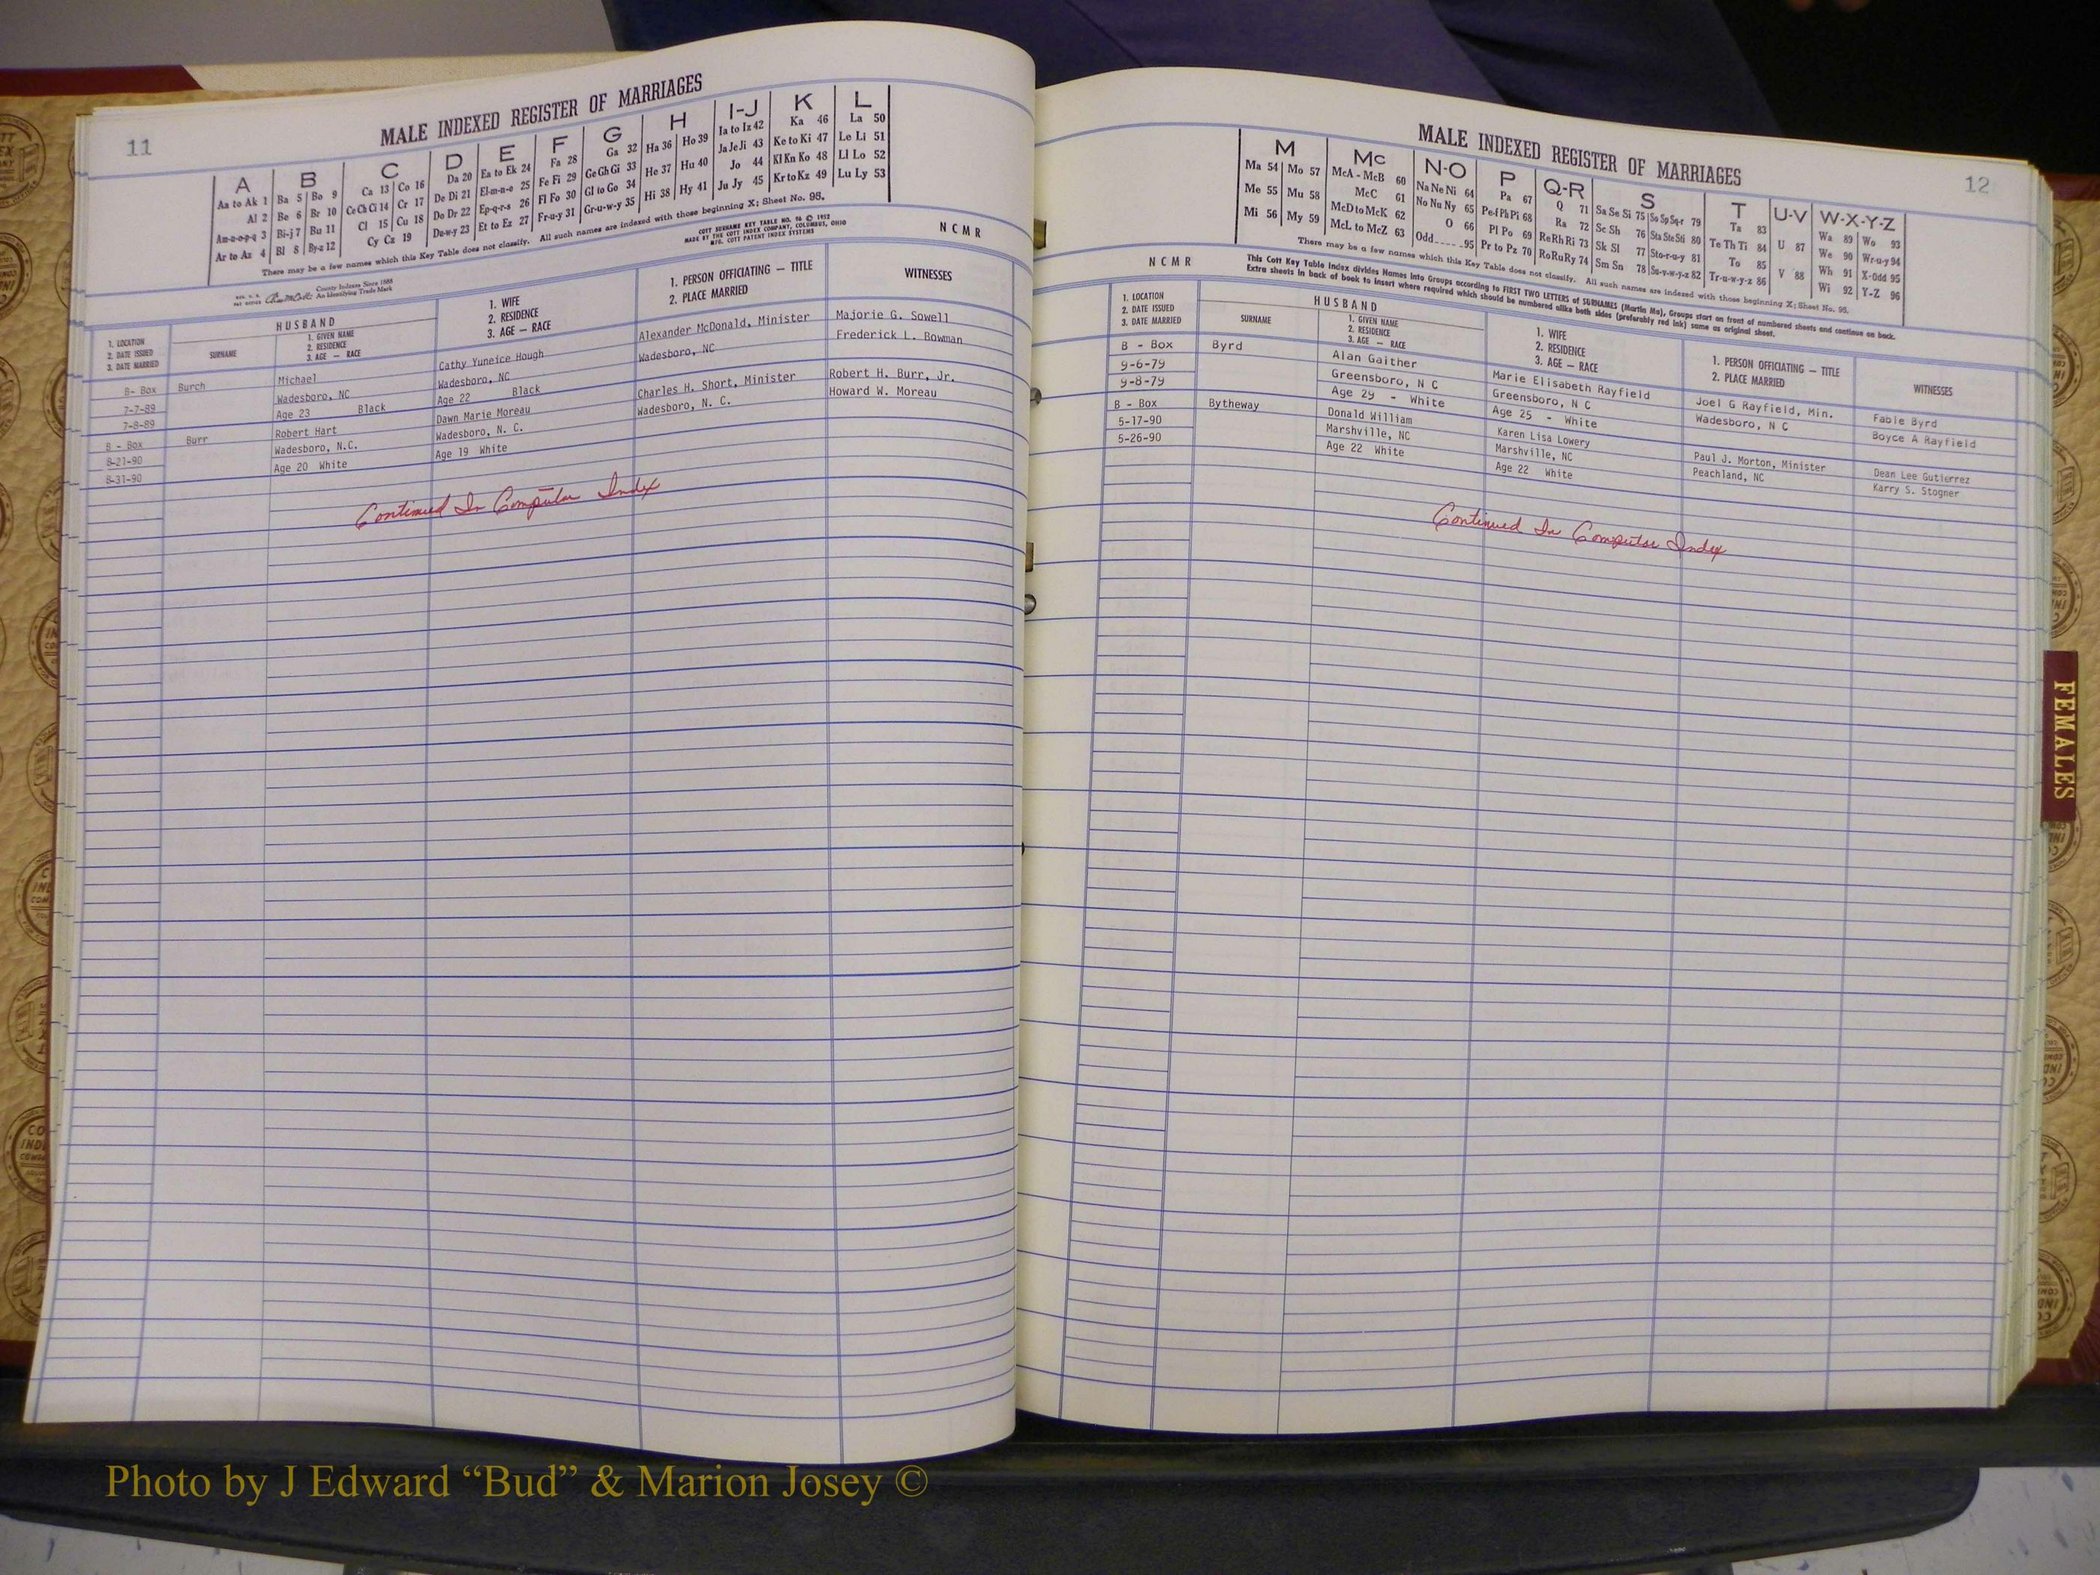 11
MALE INDEXED REGISTER OF MARRIAGES
A B C D E F G H I-J K L
Aa to Ak 1 Ba 5 Bo 9 Ca 13 Co 16 Da 20 Ea to Ek 24 Fa 28 Ga 32 Ha 36 Ho 39 Ia to Iz 42 Ka 46 La 50
Al 2 Be 6 Br 10 Ce Ch Ci 14 Cr 17 De Di 21 El-m-n-o 25 Fe Fi 29 Ge Gh Gi 33 He 37 Hu 40 Ja Je Ji 43 Ke to Ki 47 Le Li 51
Am-n-o-p-q 3 Bi-j 7 Bu 11 Cl 15 Cu 18 Do Dr 22 Ep-q-r-s 26 Fl Fo 30 Gl to Go 34 Hi 38 Hy 41 Jo 44 Kl Kn Ko 48 Ll Lo 52
Ar to Az 4 Bl 8 By-z 12 Cy Cz 19 Du-w-y 23 Et to Ez 27 Fr-u-y 31 Gr-u-w-y 35 Ju Jy 45 Kr to Kz 49 Lu Ly 53
There may be a few names which this Key Table does not classify. All such names are indexed with those beginning X; Sheet No. 95.
COTT SURNAME KEY TABLE NO. 96 © 1952
MADE BY THE COTT INDEX COMPANY, COLUMBUS, OHIO
MFG. COTT PATENT INDEX SYSTEMS
N C M R
County Indexes Since 1888
An Identifying Trade Mark
1. LOCATION
2. DATE ISSUED
3. DATE MARRIED
HUSBAND
SURNAME
1. GIVEN NAME
2. RESIDENCE
3. AGE — RACE
1. WIFE
2. RESIDENCE
3. AGE — RACE
1. PERSON OFFICIATING — TITLE
2. PLACE MARRIED
WITNESSES
B- Box Burch Michael Cathy Yuneice Hough Alexander McDonald, Minister Majorie G. Sowell
7-7-89 Wadesboro, NC Wadesboro, NC Wadesboro, NC Frederick L. Bowman
7-8-89 Age 23 Black Age 22 Black
B - Box Burr Robert Hart Dawn Marie Moreau Charles H. Short, Minister Robert H. Burr, Jr.
8-21-90 Wadesboro, N.C. Wadesboro, N. C. Wadesboro, N. C. Howard W. Moreau
8-31-90 Age 20 White Age 19 White
Continued In Computer Index
12
MALE INDEXED REGISTER OF MARRIAGES
M Mc N-O P Q-R S T U-V W-X-Y-Z
Ma 54 Mo 57 McA - McB 60 Na Ne Ni 64 Pa 67 Q 71 Sa Se Si 75 So Sp Sq-r 79 Ta 83 U 87 Wa 89 Wo 93
Me 55 Mu 58 McC 61 No Nu Ny 65 Pe-f Ph Pi 68 Ra 72 Sc Sh 76 Sta Ste Sti 80 Te Th Ti 84 V 88 We 90 Wr-u-y 94
Mi 56 My 59 McD to McK 62 O 66 Pl Po 69 Re Rh Ri 73 Sk Sl 77 Sto-r-u-y 81 To 85 Wh 91 X-Odd 95
McL to McZ 63 Odd 95 Pr to Pz 70 Ro Ru Ry 74 Sm Sn 78 Su-v-w-y-z 82 Tr-u-w-y-z 86 Wi 92 Y-Z 96
There may be a few names which this Key Table does not classify. All such names are indexed with those beginning X; Sheet No. 95.
N C M R
This Cott Key Table Index divides Names into Groups according to FIRST TWO LETTERS of SURNAMES (Martin Ma), Groups start on front of numbered sheets and continue on back.
Extra sheets in back of book to insert where required which should be numbered alike both sides (preferably red ink) same as original sheet.
1. LOCATION
2. DATE ISSUED
3. DATE MARRIED
HUSBAND
SURNAME
1. GIVEN NAME
2. RESIDENCE
3. AGE — RACE
1. WIFE
2. RESIDENCE
3. AGE — RACE
1. PERSON OFFICIATING — TITLE
2. PLACE MARRIED
WITNESSES
B - Box Byrd Alan Gaither Marie Elisabeth Rayfield Joel G Rayfield, Min. Fable Byrd
9-6-79 Greensboro, N C Greensboro, N C Wadesboro, N C Boyce A Rayfield
9-8-79 Age 29 - White Age 25 - White
B - Box Bytheway Donald William Karen Lisa Lowery Paul J. Morton, Minister Dean Lee Gutierrez
5-17-90 Marshville, NC Marshville, NC Peachland, NC Karry S. Stogner
5-26-90 Age 22 White Age 22 White
Continued In Computer Index
FEMALES
Photo by J Edward “Bud” & Marion Josey ©